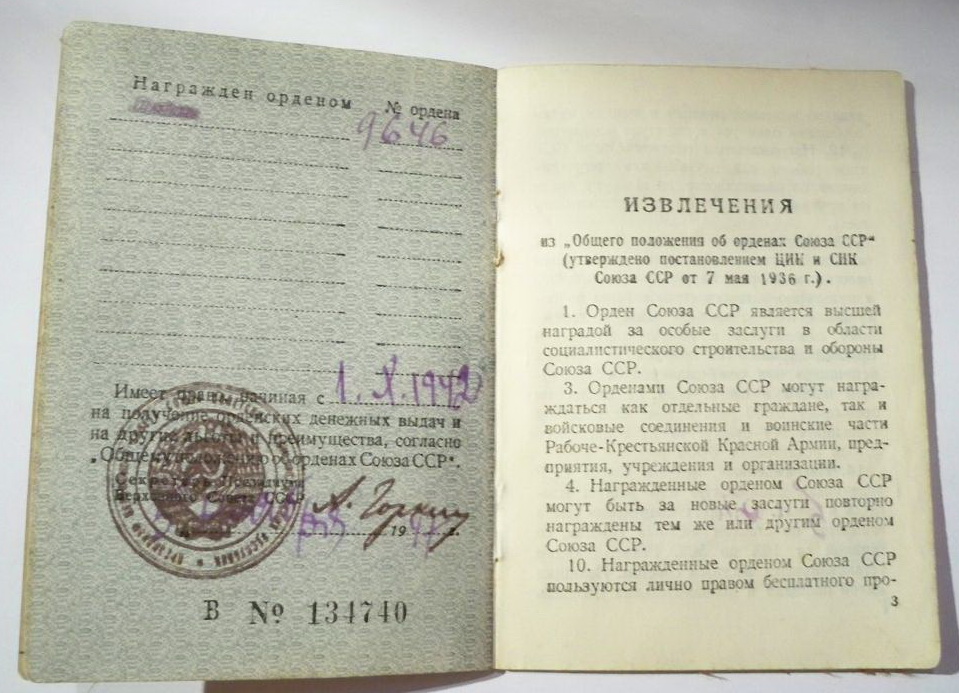 Награжден орденом № ордена
9646
Имеет право, начиная с 1.X.1942
на получение орденских денежных выдач и
на другие льготы и преимущества, согласно
„Общему положению об орденах Союза ССР“.
Секретарь Президиума
Верховного Совета СССР
А. Горкин
19 г.
В № 134740
ИЗВЛЕЧЕНИЯ
из „Общего положения об орденах Союза ССР“
(утверждено постановлением ЦИК и СНК
Союза ССР от 7 мая 1936 г.).
1. Орден Союза ССР является высшей
наградой за особые заслуги в области
социалистического строительства и обороны
Союза ССР.
3. Орденами Союза ССР могут награ-
ждаться как отдельные граждане, так и
войсковые соединения и воинские части
Рабоче-Крестьянской Красной Армии, пред-
приятия, учреждения и организации.
4. Награжденные орденом Союза ССР
могут быть за новые заслуги повторно
награждены тем же или другим орденом
Союза ССР.
10. Награжденные орденом Союза ССР
пользуются лично правом бесплатного про-
3